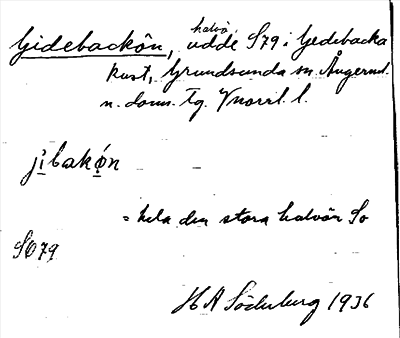 halvö
Gidebackön, udde S79 i Gedebacka
kust, Grundsunda sn Ångerml.
n. doms. Tg. Ynorrl. l.
jibakǿn
= hela den stora halvön So
SO79
H A Söderberg 1936